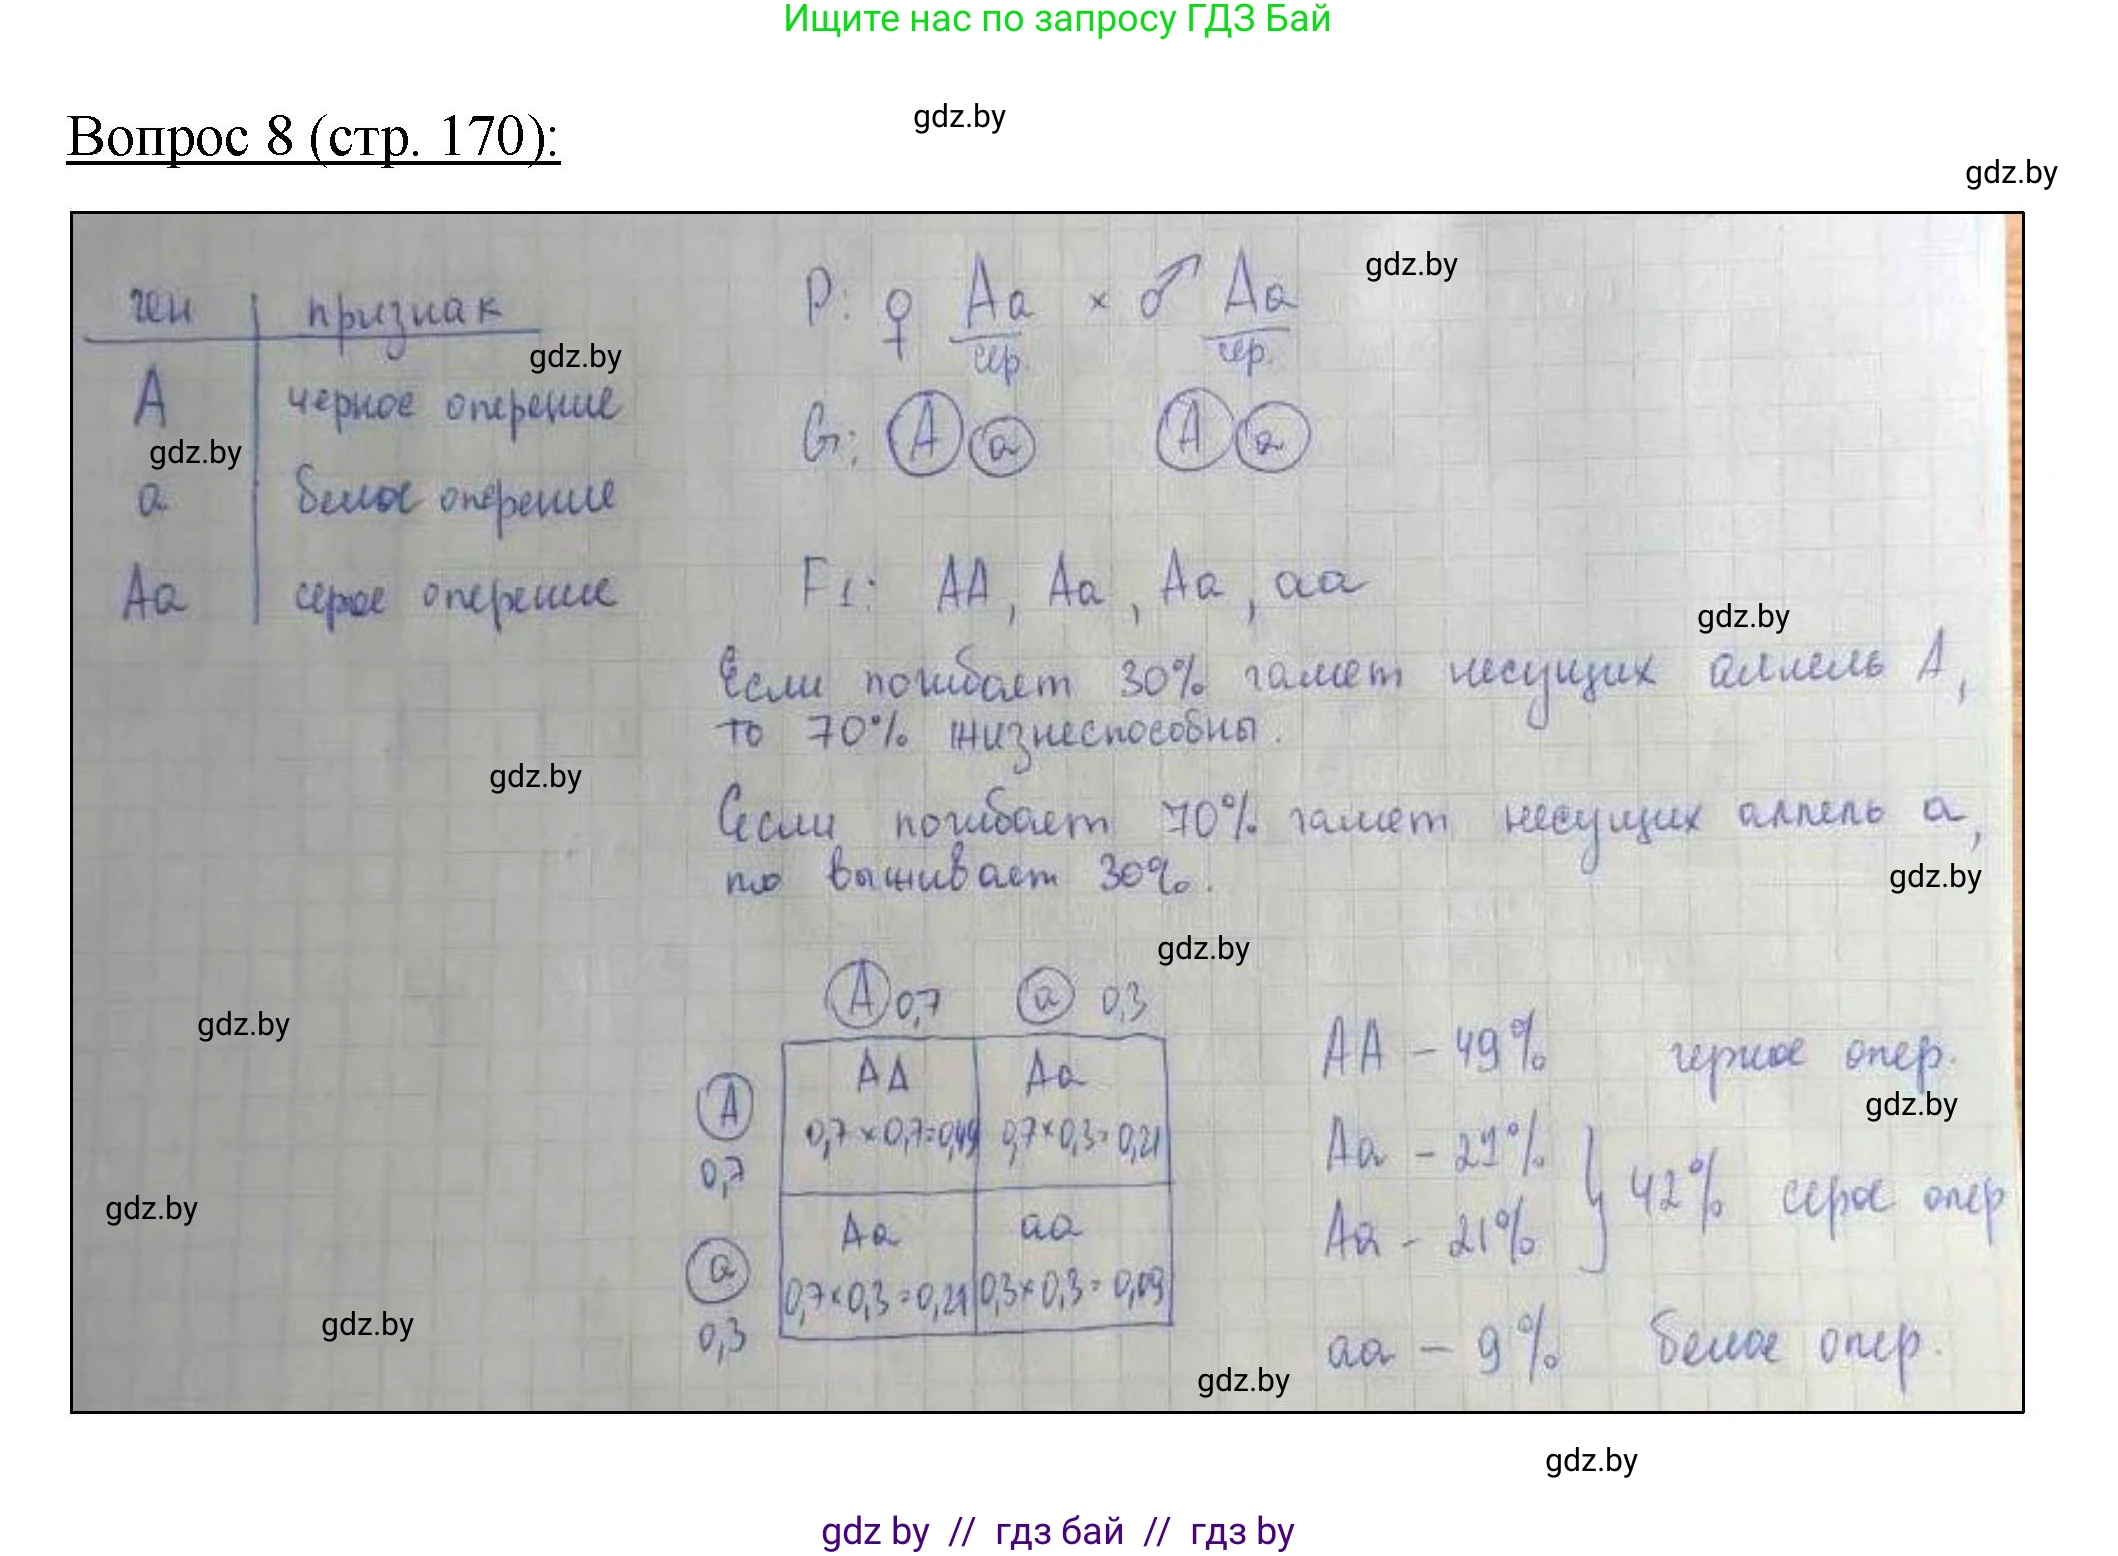 Ищите нас по запросу ГДЗ Бай
gdz.by
Вопрос 8 (стр. 170):
gdz.by
ген признак
А черное оперение
а белое оперение
Аа серое оперение
gdz.by
gdz.by
P: ♀ Аа × ♂ Аа
сер. сер.
gdz.by
G: А а А а
F1: АА, Аа, Аа, аа
gdz.by
Если погибает 30% гамет несущих аллель А,
то 70% жизнеспособны.
gdz.by
Если погибает 70% гамет несущих аллель а,
то выживает 30%.
gdz.by
gdz.by
А 0,7 а 0,3
gdz.by
А АА Аа
0,7 0,7×0,7=0,49 0,7×0,3=0,21
а Аа аа
0,3 0,7×0,3=0,21 0,3×0,3=0,09
АА – 49% черное опер.
gdz.by
Аа – 21%
Аа – 21%
} 42% серое опер
аа – 9% белое опер.
gdz.by
gdz.by
gdz.by
gdz.by
gdz by // гдз бай // гдз by